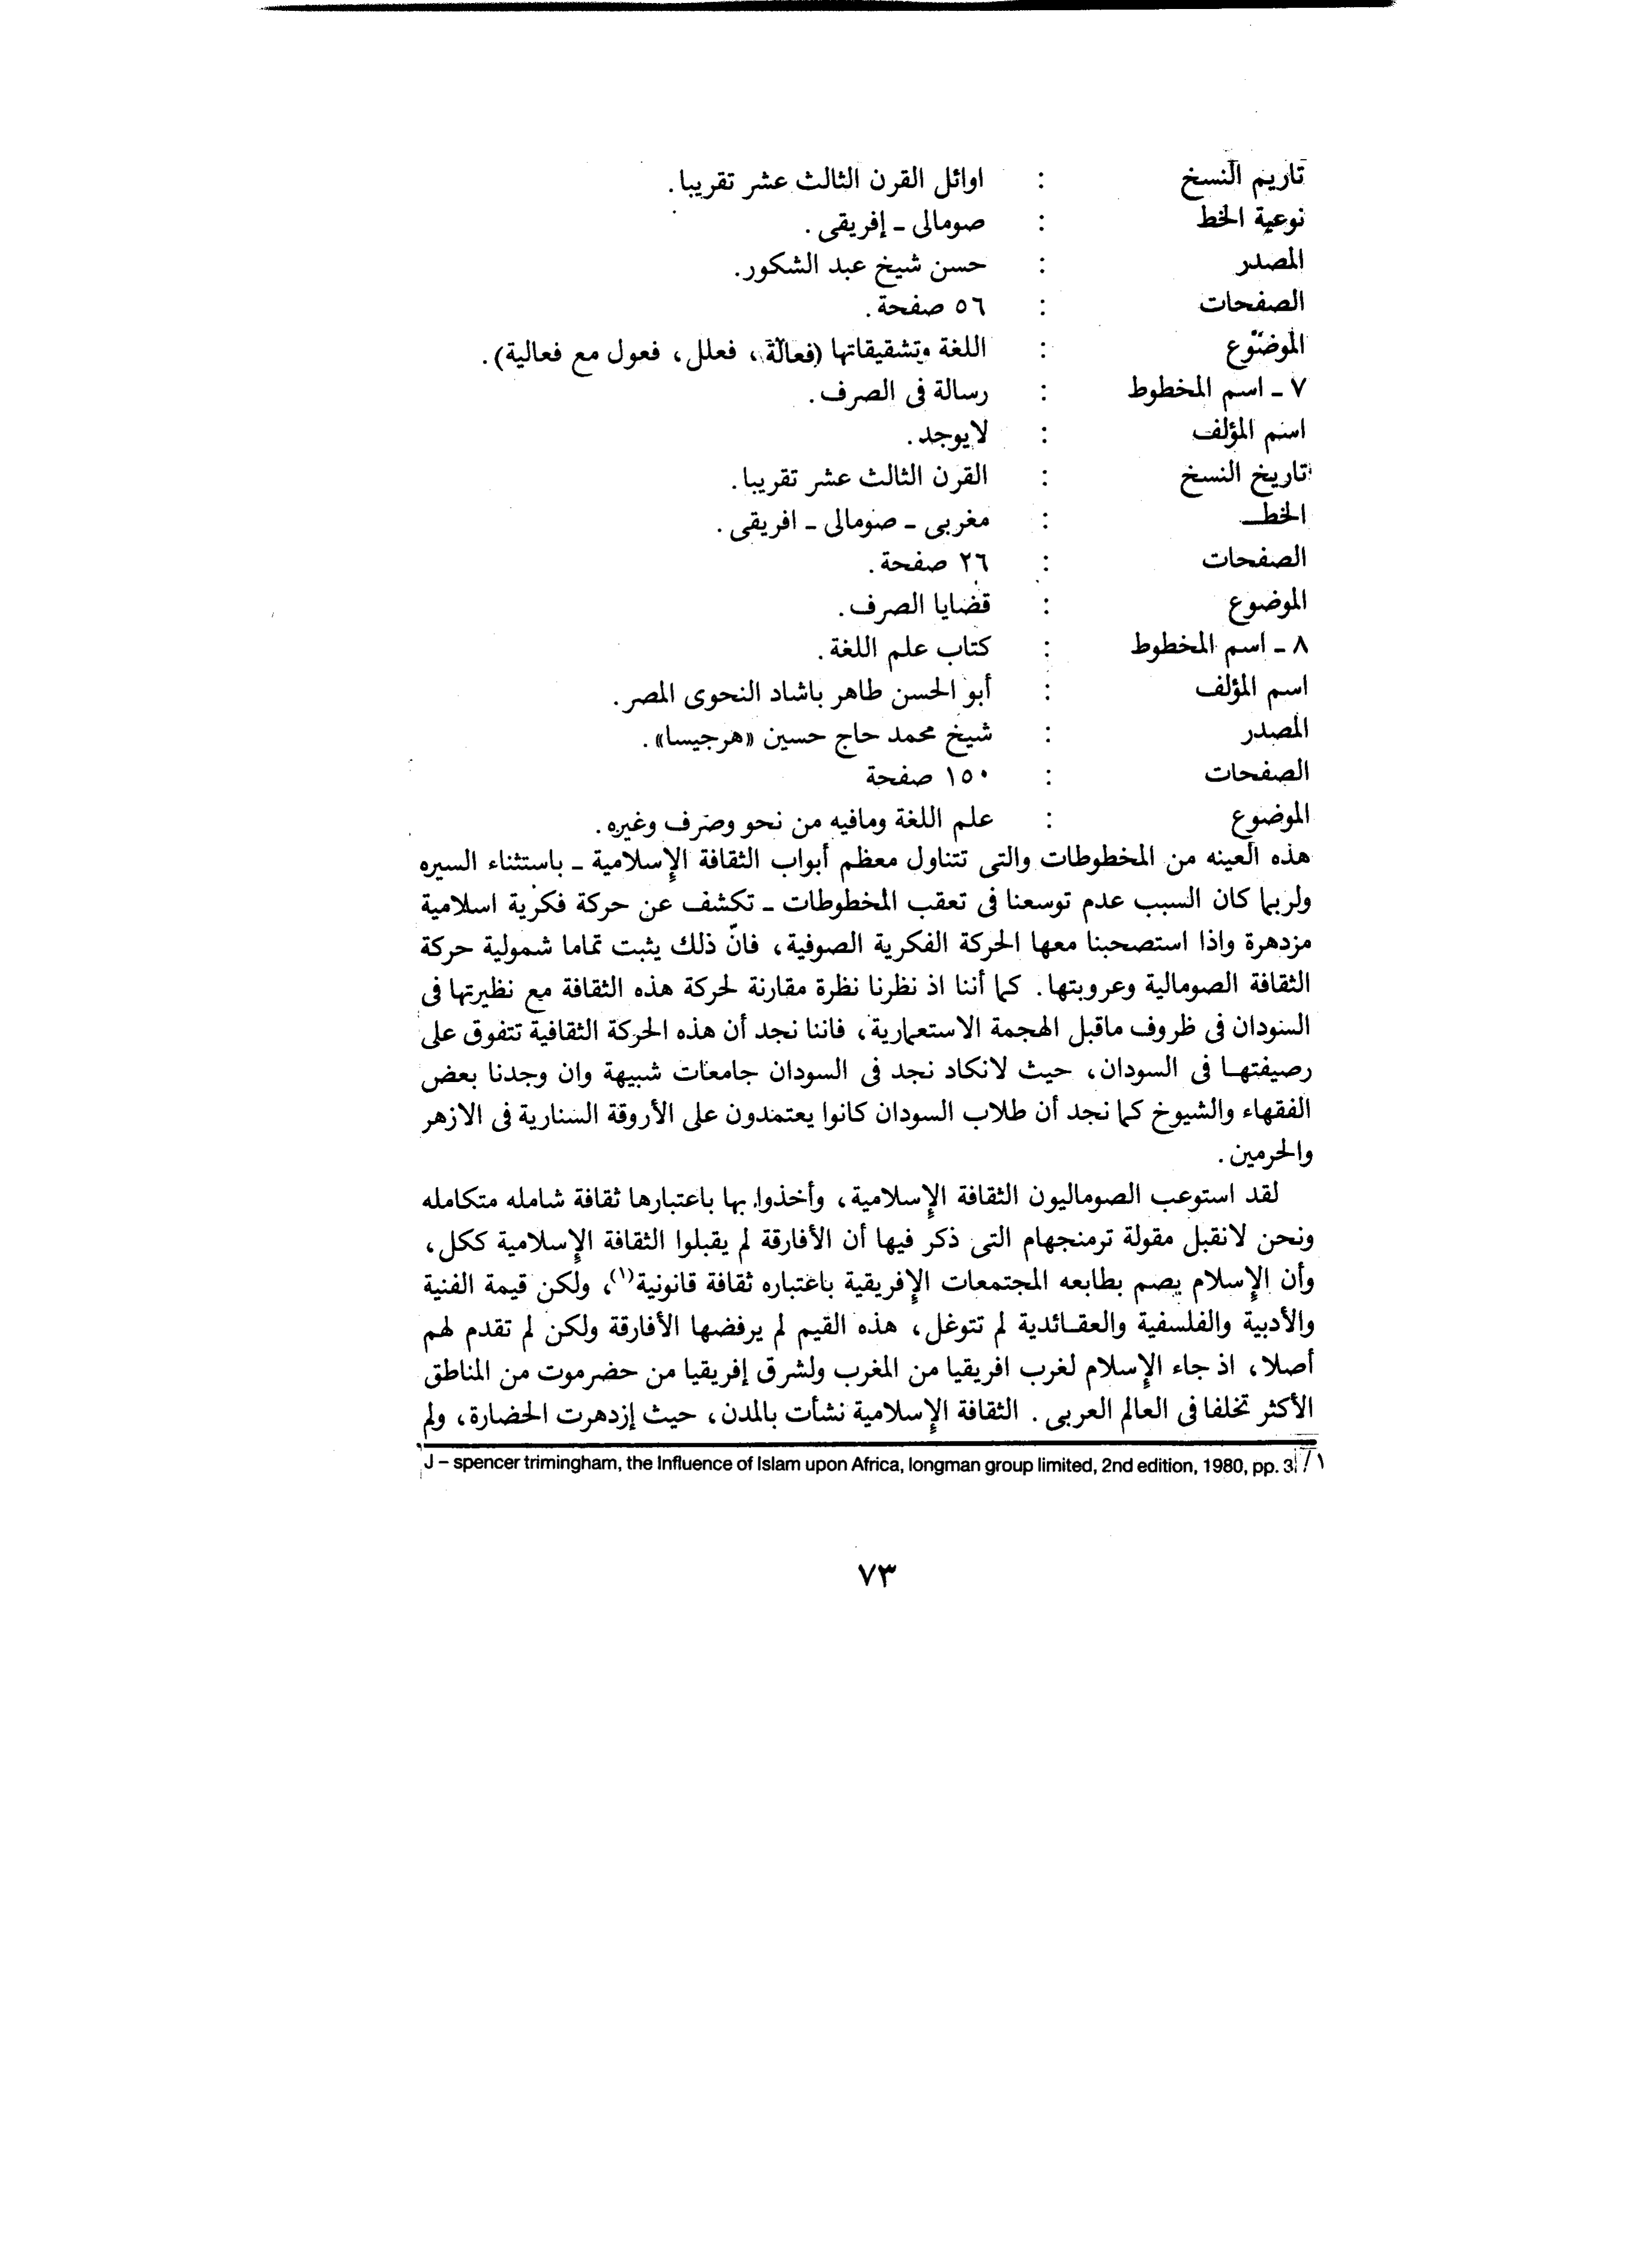 تاريم النسخ : اوائل القرن الثالث عشر تقريبا.
نوعية الخط : صومالى - إفريقى.
المصدر : حسن شيخ عبد الشكور.
الصفحات : ٥٦ صفحة.
الموضوع : اللغة وتشقيقاتها (فعالة، فعلل، فعول مع فعالية).
٧ - اسم المخطوط : رسالة فى الصرف.
اسم المؤلف : لايوجد.
تاريخ النسخ : القرن الثالث عشر تقريبا.
الخط : مغربى - صومالى - افريقى.
الصفحات : ٢٦ صفحة.
الموضوع : قضايا الصرف.
٨ - اسم المخطوط : كتاب علم اللغة.
اسم المؤلف : أبو الحسن طاهر باشاد النحوى المصر.
المصدر : شيخ محمد حاج حسين «هرجيسا».
الصفحات : ١٥٠ صفحة
الموضوع : علم اللغة ومافيه من نحو وصرف وغيره.
هذه العينه من المخطوطات والتى تتناول معظم أبواب الثقافة الإسلامية - باستثناء السيره
ولربما كان السبب عدم توسعنا فى تعقب المخطوطات - تكشف عن حركة فكرية اسلامية
مزدهرة واذا استصحبنا معها الحركة الفكرية الصوفية، فانّ ذلك يثبت تماما شمولية حركة
الثقافة الصومالية وعروبتها. كما أننا اذ نظرنا نظرة مقارنة لحركة هذه الثقافة مع نظيرتها فى
السودان فى ظروف ماقبل الهجمة الاستعمارية، فاننا نجد أن هذه الحركة الثقافية تتفوق على
رصيفتهـا فى السودان، حيث لانكاد نجد فى السودان جامعات شبيهة وان وجدنا بعض
الفقهاء والشيوخ كما نجد أن طلاب السودان كانوا يعتمدون على الأروقة السنارية فى الازهر
والحرمين.
لقد استوعب الصوماليون الثقافة الإسلامية، وأخذوا بها باعتبارها ثقافة شامله متكامله
ونحن لانقبل مقولة ترمنجهام التى ذكر فيها أن الأفارقة لم يقبلوا الثقافة الإسلامية ككل،
وأن الإسلام يصم بطابعه المجتمعات الإفريقية باعتباره ثقافة قانونية(١)، ولكن قيمة الفنية
والأدبية والفلسفية والعقـائدية لم تتوغل، هذه القيم لم يرفضها الأفارقة ولكن لم تقدم لهم
أصلا، اذ جاء الإسلام لغرب افريقيا من المغرب ولشرق إفريقيا من حضرموت من المناطق
الأكثر تخلفا فى العالم العربى. الثقافة الإسلامية نشأت بالمدن، حيث إزدهرت الحضارة، ولم
١/ J – spencer trimingham, the Influence of Islam upon Africa, longman group limited, 2nd edition, 1980, pp. 3
٧٣